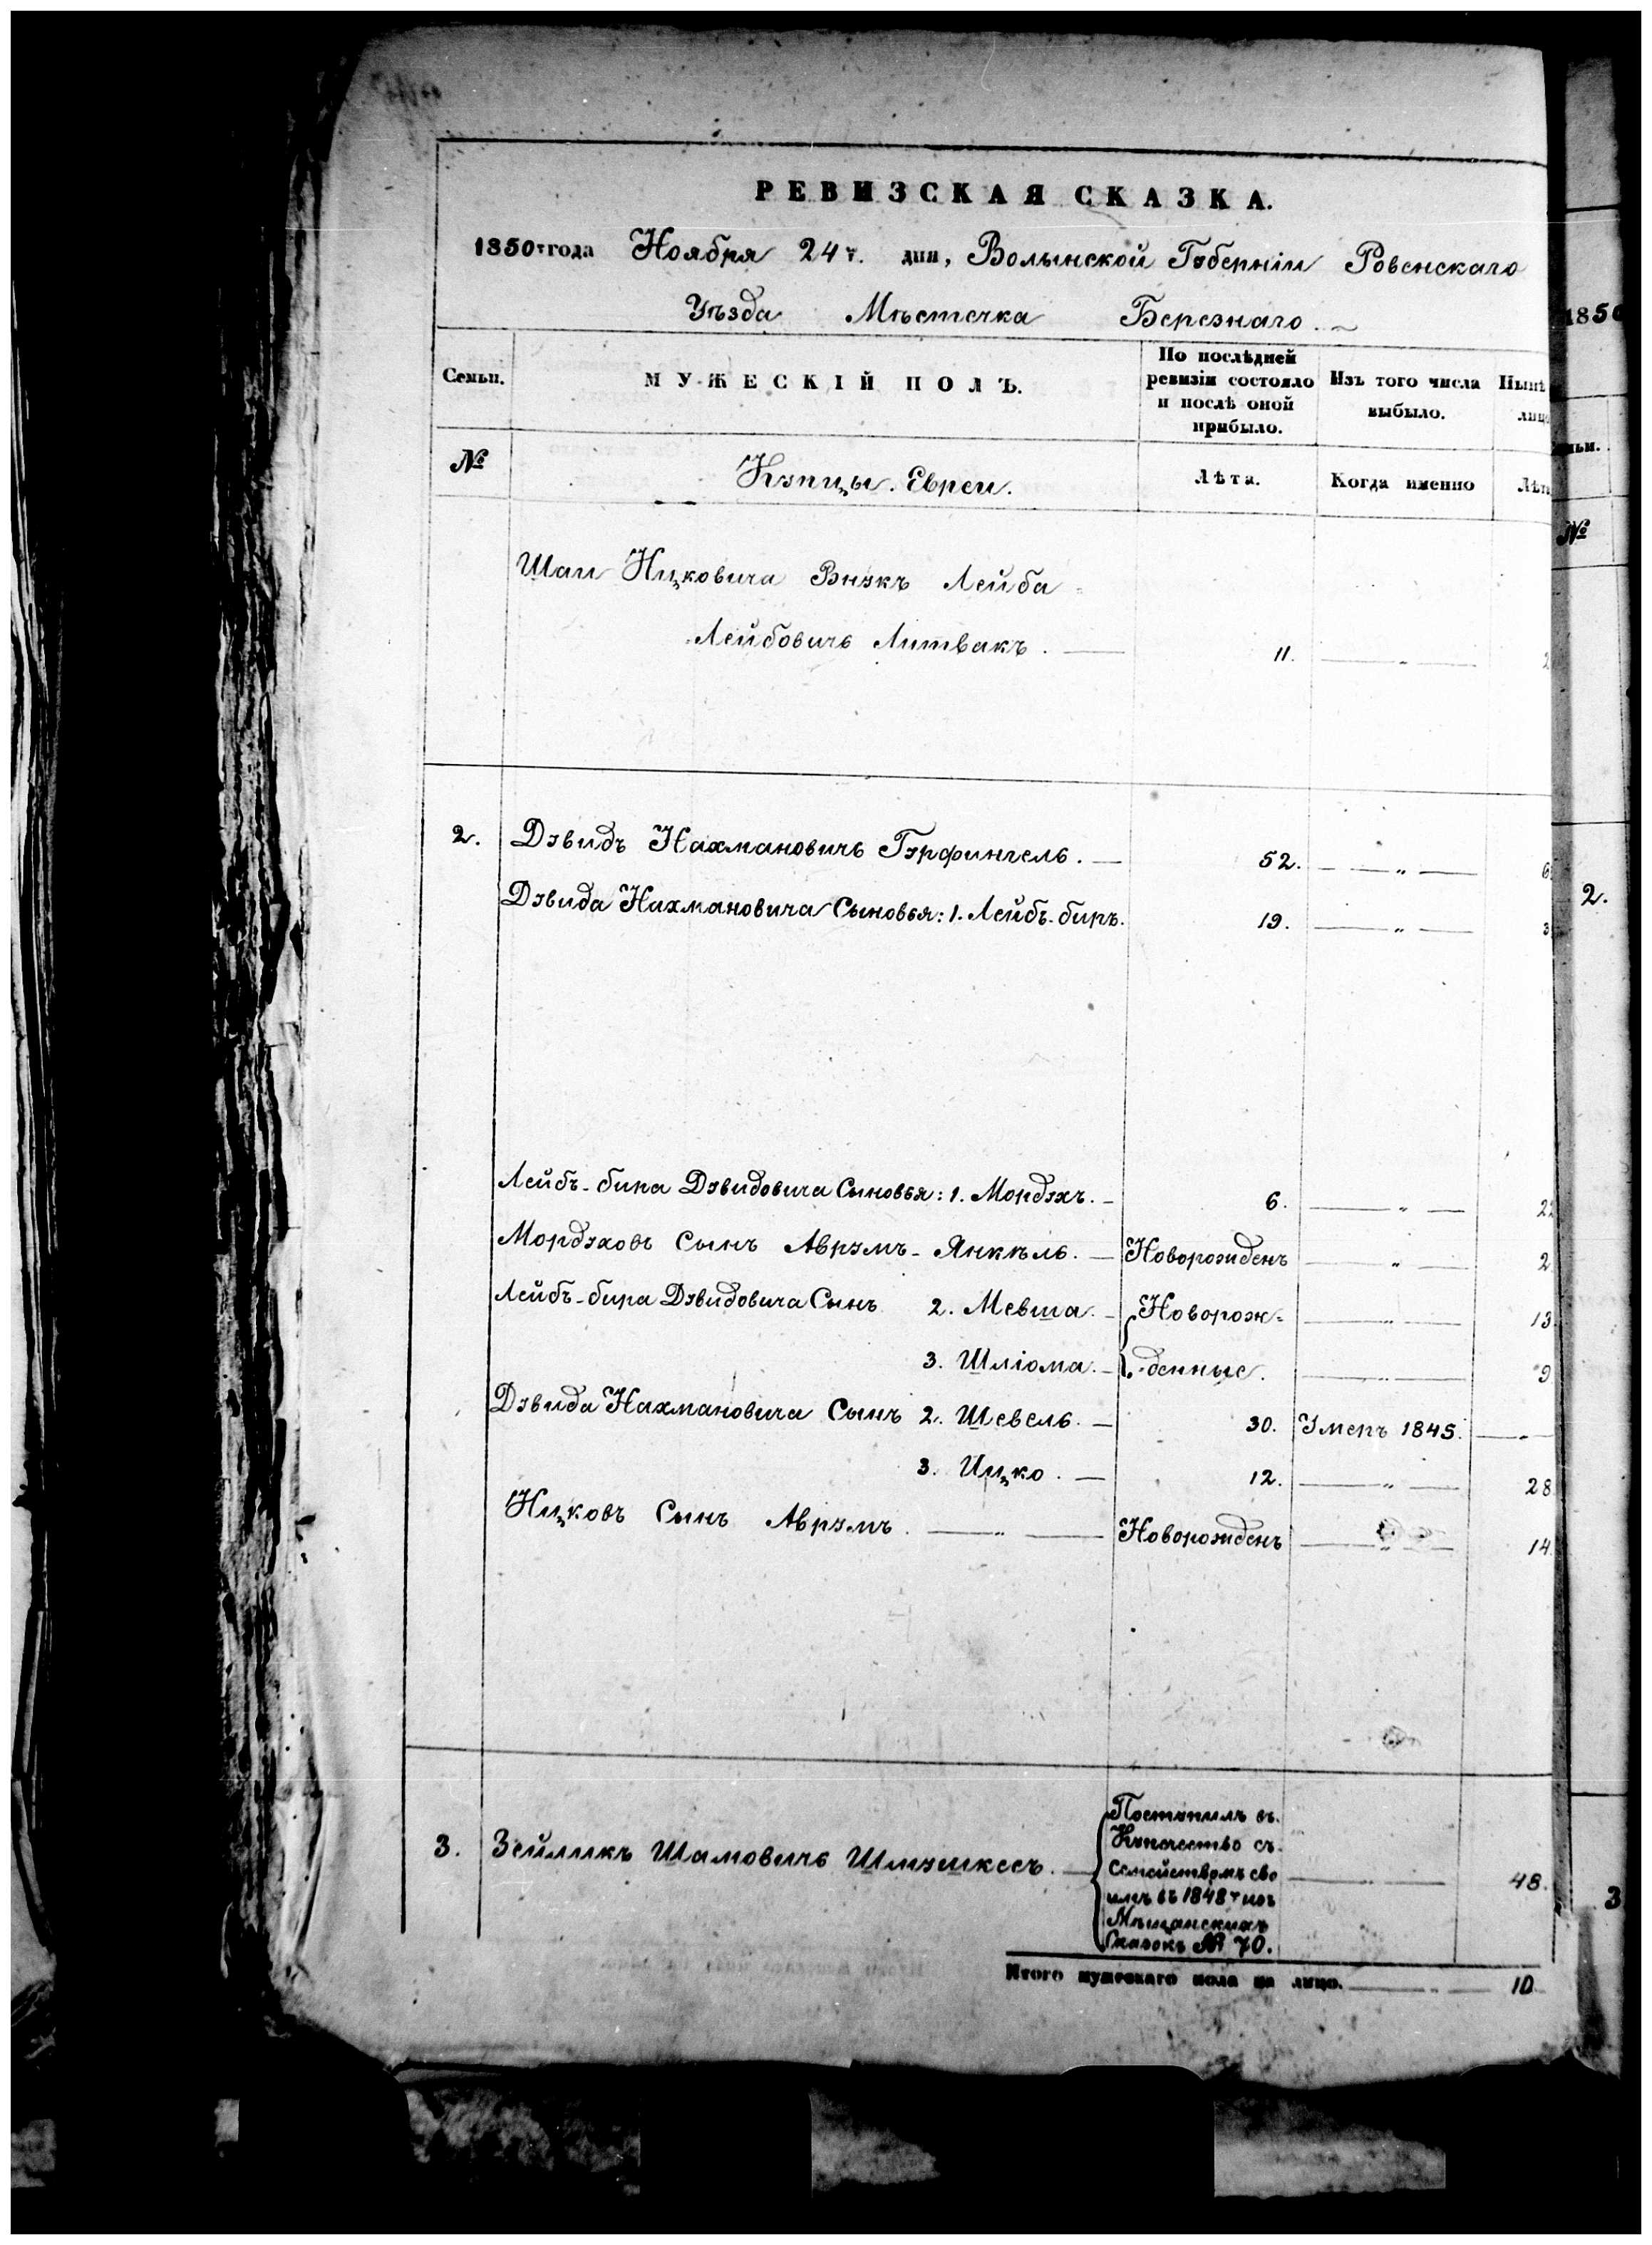 РЕВИЗСКАЯ СКАЗКА.
1850 года Ноября 24 дня, Волынской Губернiи Ровенскаго
Уѣзда Мѣстечка Березнаго.
Семьи.
МУЖЕСКIЙ ПОЛЪ.
По послѣдней
ревизiи состояло
и послѣ оной
прибыло.
Изъ того числа
выбыло.
№
Купцы. Евреи.
Лѣта.
Когда именно
Шаи Ицковича Внукъ Лейба
Лейбовичъ Литвакъ. 11.
2. Дувидъ Нахмановичъ Гурфинкель. 52.
Дувида Нахмановича Сыновья: 1. Лейбъ-биръ. 19.
Лейбъ-бира Дувидовича Сыновья: 1. Мордухъ. 6.
Мордуховъ Сынъ Аврумъ-Янкѣль. Новорожденъ
Лейбъ-бира Дувидовича Сынъ 2. Мевша. Новорож- 13
3. Шлiома. -денные. 9
Дувида Нахмановича Сынъ 2. Шевель. 30. Умеръ 1845.
3. Ицко. 12. 28
Ицковъ Сынъ Аврумъ. Новорожденъ 14
3. Зейликъ Шамовичъ 48.
Поступилъ въ
Купечество съ
Семействомъ сво
имъ въ 1848 изъ
Мѣщанскихъ
Сказокъ № 70.
Итого мужескаго пола на лицо. 10
1850
№
2.
3